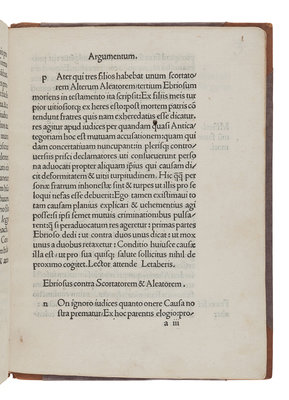 Argumentum.
p Ater qui tres filios habebat unum scortato
rem Alterum Aleatorem: tertium Ebriosum
moriens in testamento ita scripsit: Ex filiis meis tur
pior uitiosiorq; ex heres esto: post mortem patris cõ
tendunt fratres quis nam exheredatus esse dicatur.
res agitur apud iudices per quandam quasi Antica
tegoriam hoc est per mutuam accusationem: quam qui
dam concertatiuam nuncupant: in plerisq; contro-
uersiis prisci declamatores uti consueuerunt perso
na aduocati propter aliquam ipsius qui causam di
cit deformitatem & uiti turpitudinem. Hic q̃q̃ per
sonæ fratrum inhonestæ sint & turpes ut illis pro se
loqui nefas esse debuerit: Ego tamen existimaui to
tam causam planius explicari & uehementius agi
posse si ipsi semet mutuis criminationibus pulsa-
rent: q̃ si peraduocatum res ageretur: primas partes
Ebrioso dedi: ut contra duos unus dicat: ut mox
unus a duobus retaxetur: Conditio huiusce causæ
illa est: ut pro sua quisq; salute sollicitus nihil de
proximo cogitet. Lector attende Letaberis.
Ebriosus contra Scortatorem & Aleatorem.
n On ignoro iudices quanto onere Causa no
stra prematur: Ex hoc parentis elogio: pro-
a iii